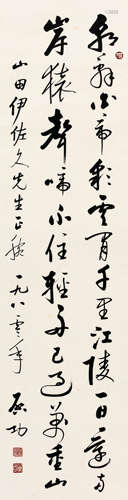 朝辞白帝彩云间千里江陵一日还两
岸猿声啼不住轻舟已过万重山
山田伊佐久先生正腕 一九八零年 启功